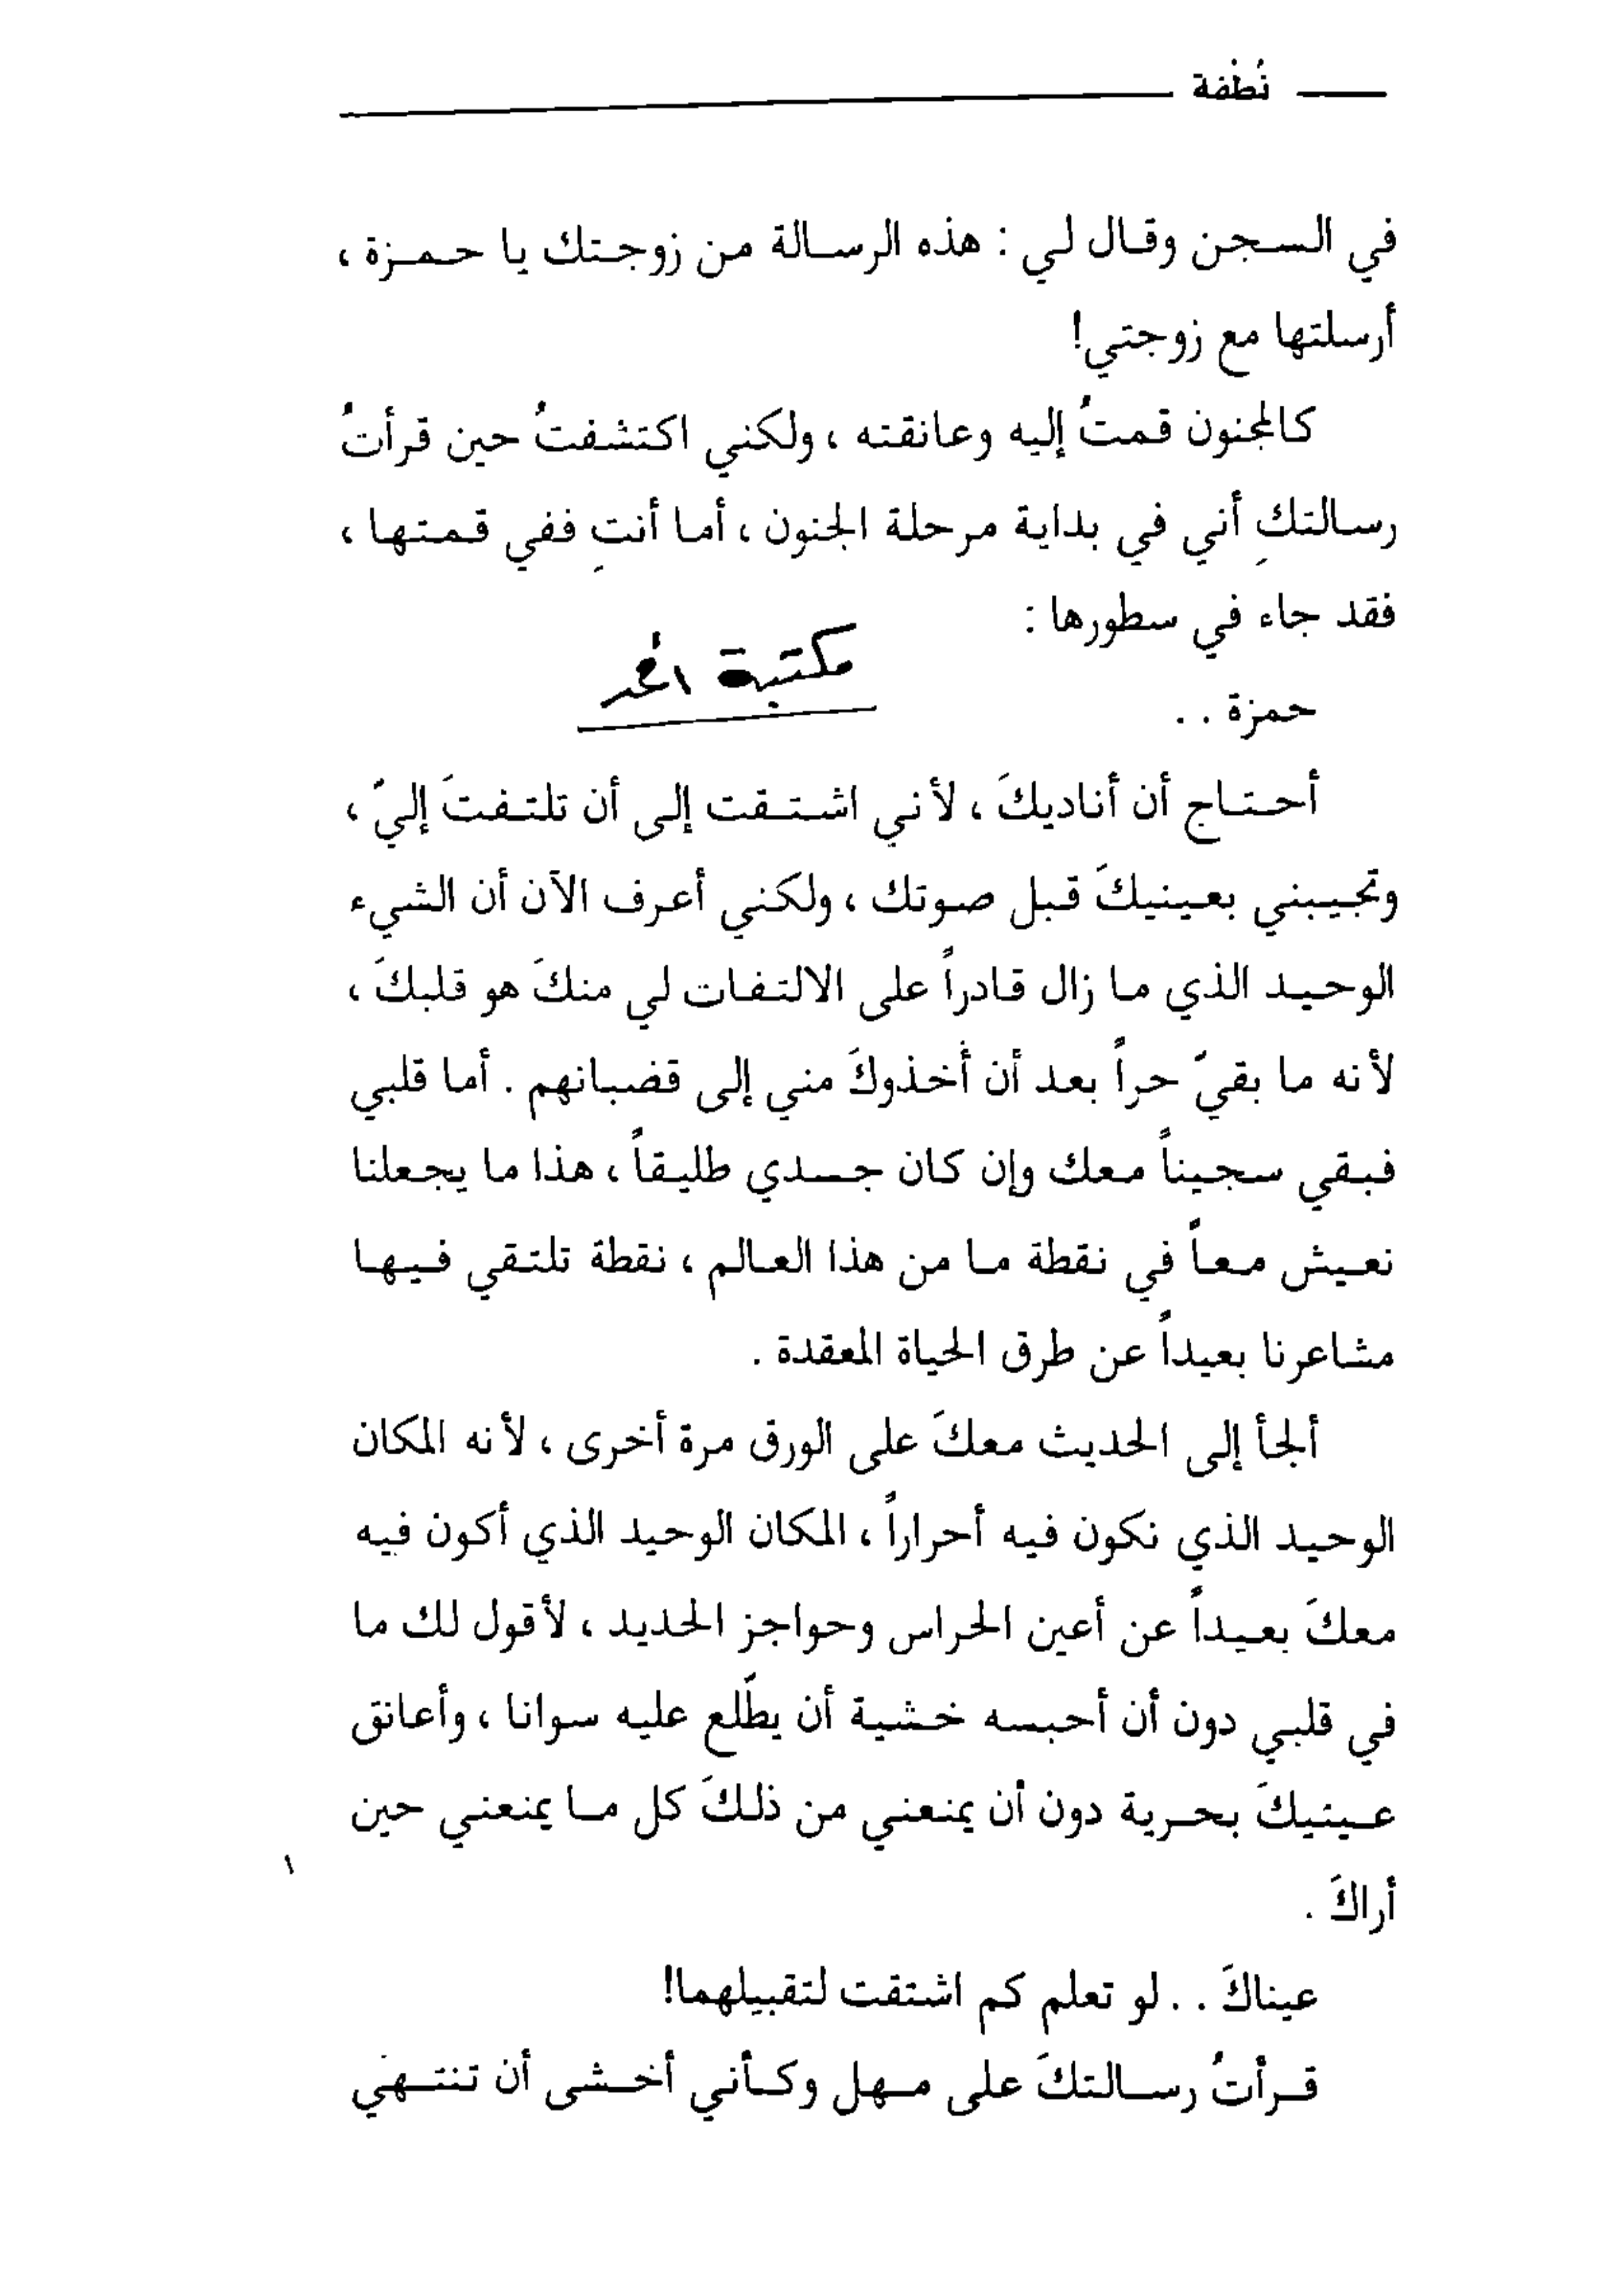 نُطْفة
في السجن وقال لي : هذه الرسالة من زوجتك يا حمزة ،
أرسلتها مع زوجتي!
كالمجنون قمتُ إليه وعانقته ، ولكني اكتشفتُ حين قرأتُ
رسالتكِ أني في بداية مرحلة الجنون ، أما أنتِ ففي قمتها ،
فقد جاء في سطورها :
مكتبة
حمزة . .
أحتاج أن أناديكَ ، لأني اشتقت إلى أن تلتفتَ إليّ ،
وتجيبني بعينيكَ قبل صوتك ، ولكني أعرف الآن أن الشيء
الوحيد الذي ما زال قادراً على الالتفات لي منكَ هو قلبكَ ،
لأنه ما بقيَ حراً بعد أن أخذوكَ مني إلى قضبانهم . أما قلبي
فبقي سجيناً معك وإن كان جسدي طليقاً ، هذا ما يجعلنا
نعيش معاً في نقطة ما من هذا العالم ، نقطة تلتقي فيها
مشاعرنا بعيداً عن طرق الحياة المعقدة .
ألجأ إلى الحديث معكَ على الورق مرة أخرى ، لأنه المكان
الوحيد الذي نكون فيه أحراراً ، المكان الوحيد الذي أكون فيه
معكَ بعيداً عن أعين الحراس وحواجز الحديد ، لأقول لك ما
في قلبي دون أن أحبسه خشية أن يطّلع عليه سوانا ، وأعانق
عينيكَ بحرية دون أن يمنعني من ذلكَ كل ما يمنعني حين
أراكَ .
عيناكَ . . لو تعلم كم اشتقت لتقبيلهما!
قرأتُ رسالتكَ على مهل وكأني أخشى أن تنتهي